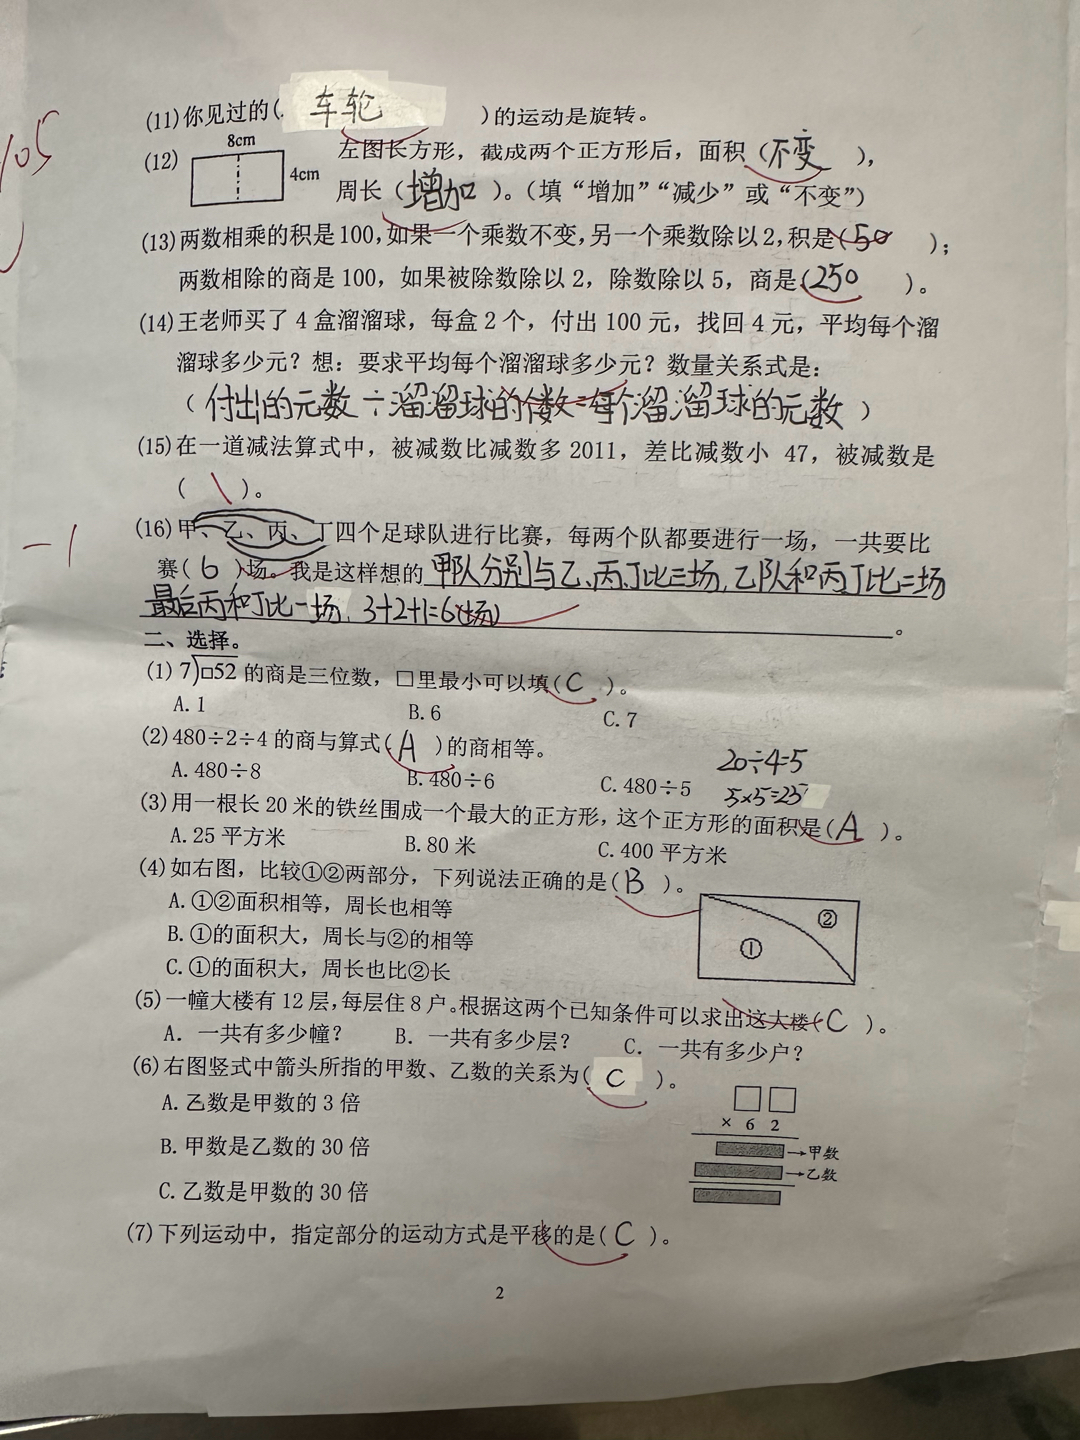 105
(11)你见过的(车轮)的运动是旋转。
(12) 8cm 4cm 左图长方形，截成两个正方形后，面积（不变），
周长（增加）。（填“增加”“减少”或“不变”）
(13)两数相乘的积是100,如果一个乘数不变,另一个乘数除以2,积是(50)；
两数相除的商是100，如果被除数除以2，除数除以5，商是(250)。
(14)王老师买了4盒溜溜球，每盒2个，付出100元，找回4元，平均每个溜
溜球多少元？想：要求平均每个溜溜球多少元？数量关系式是：
（付出的元数÷溜溜球的个数=每个溜溜球的元数）
(15)在一道减法算式中，被减数比减数多2011，差比减数小 47，被减数是
（ ）。
-1
(16)甲、乙、丙、丁四个足球队进行比赛，每两个队都要进行一场，一共要比
赛(6)场。我是这样想的 甲队分别与乙、丙、丁比三场，乙队和丙、丁比二场
最后丙和丁比一场，3+2+1=6(场)。
二、选择。
(1) 7)□52 的商是三位数，□里最小可以填(C)。
A.1 B.6 C.7
(2)480÷2÷4的商与算式(A)的商相等。
A.480÷8 B.480÷6 C.480÷5
20÷4=5
5×5=25
(3)用一根长20米的铁丝围成一个最大的正方形，这个正方形的面积是(A)。
A.25平方米 B.80米 C.400平方米
(4)如右图，比较①②两部分，下列说法正确的是(B)。
A.①②面积相等，周长也相等
B.①的面积大，周长与②的相等
C.①的面积大，周长也比②长
① ②
(5)一幢大楼有12层,每层住8户。根据这两个已知条件可以求出这大楼(C)。
A. 一共有多少幢？ B. 一共有多少层？ C. 一共有多少户？
(6)右图竖式中箭头所指的甲数、乙数的关系为(C)。
A.乙数是甲数的3倍
B.甲数是乙数的30倍
C.乙数是甲数的30倍
□□
× 6 2
→甲数
→乙数
(7)下列运动中，指定部分的运动方式是平移的是(C)。
2